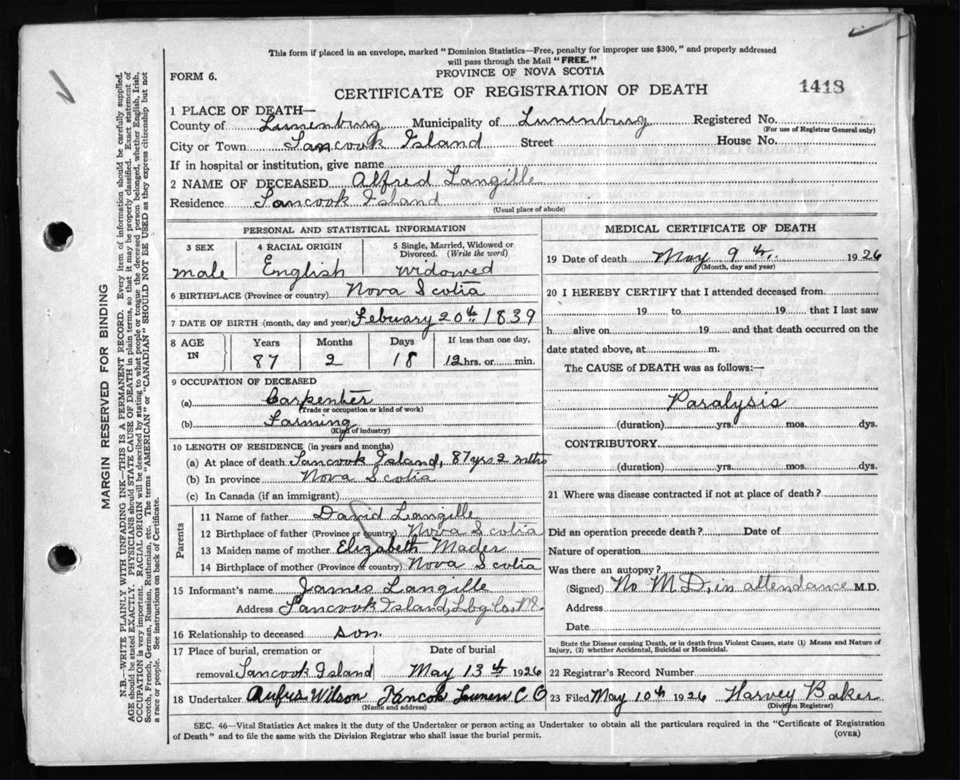 This form if placed in an envelope, marked "Dominion Statistics—Free, penalty for improper use $300," and properly addressed
will pass through the Mail "FREE."
FORM 6.
PROVINCE OF NOVA SCOTIA
CERTIFICATE OF REGISTRATION OF DEATH
1418
1 PLACE OF DEATH—
County of Lunenburg Municipality of Lunenburg Registered No.
(For use of Registrar General only)
City or Town Tancook Island Street House No.
If in hospital or institution, give name
2 NAME OF DECEASED Alfred Langille
Residence Tancook Island
(Usual place of abode)
PERSONAL AND STATISTICAL INFORMATION
3 SEX 4 RACIAL ORIGIN 5 Single, Married, Widowed or
Divorced. (Write the word)
male English widowed
6 BIRTHPLACE (Province or country) Nova Scotia
7 DATE OF BIRTH (month, day and year) Febuary 20th 1839
8 AGE IN Years Months Days If less than one day,
87 2 18 12 hrs. or min.
9 OCCUPATION OF DECEASED
(a) Carpenter
(Trade or occupation or kind of work)
(b) Farming
(Kind of industry)
10 LENGTH OF RESIDENCE (in years and months)
(a) At place of death Tancook Island, 87 yrs 2 mths
(b) In province Nova Scotia
(c) In Canada (if an immigrant)
Parents
11 Name of father David Langille
12 Birthplace of father (Province or country) Nova Scotia
13 Maiden name of mother Elizabeth Mader
14 Birthplace of mother (Province or country) Nova Scotia
15 Informant's name James Langille
Address Tancook Island, Lbg Co, NS.
16 Relationship to deceased son.
17 Place of burial, cremation or Date of burial
removal Tancook Island May 13th 1926
18 Undertaker Rufus Wilson Tancook Lunen C O
(Name and address)
MEDICAL CERTIFICATE OF DEATH
19 Date of death May 9th. 1926
(Month, day and year)
20 I HEREBY CERTIFY that I attended deceased from
19 to 19 that I last saw
h alive on 19 and that death occurred on the
date stated above, at m.
The CAUSE of DEATH was as follows:—
Paralysis
(duration) yrs. mos. dys.
CONTRIBUTORY
(duration) yrs. mos. dys.
21 Where was disease contracted if not at place of death?
Did an operation precede death? Date of
Nature of operation
Was there an autopsy?
(Signed) No M.D. in attendance M.D.
Address
Date
State the Disease causing Death, or in death from Violent Causes, state (1) Means and Nature of
Injury, (2) whether Accidental, Suicidal or Homicidal.
22 Registrar's Record Number
23 Filed May 10th 1926 Harvey Baker
(Division Registrar)
SEC. 46—Vital Statistics Act makes it the duty of the Undertaker or person acting as Undertaker to obtain all the particulars required in the "Certificate of Registration
of Death" and to file the same with the Division Registrar who shall issue the burial permit.
(OVER)
MARGIN RESERVED FOR BINDING
N.B.—WRITE PLAINLY WITH UNFADING INK—THIS IS A PERMANENT RECORD. Every item of information should be carefully supplied.
AGE should be stated EXACTLY. PHYSICIANS should STATE CAUSE OF DEATH in plain terms, so that it may be properly classified. Exact statement of
OCCUPATION is very important. RACIAL ORIGIN will be described by stating to what people or tongue the deceased person belonged, whether English, Irish,
Scotch, French, German, Russian, Ruthenian, etc. The terms "AMERICAN" or "CANADIAN" SHOULD NOT BE USED as they express citizenship but not
a race or people. See instructions on back of Certificate.